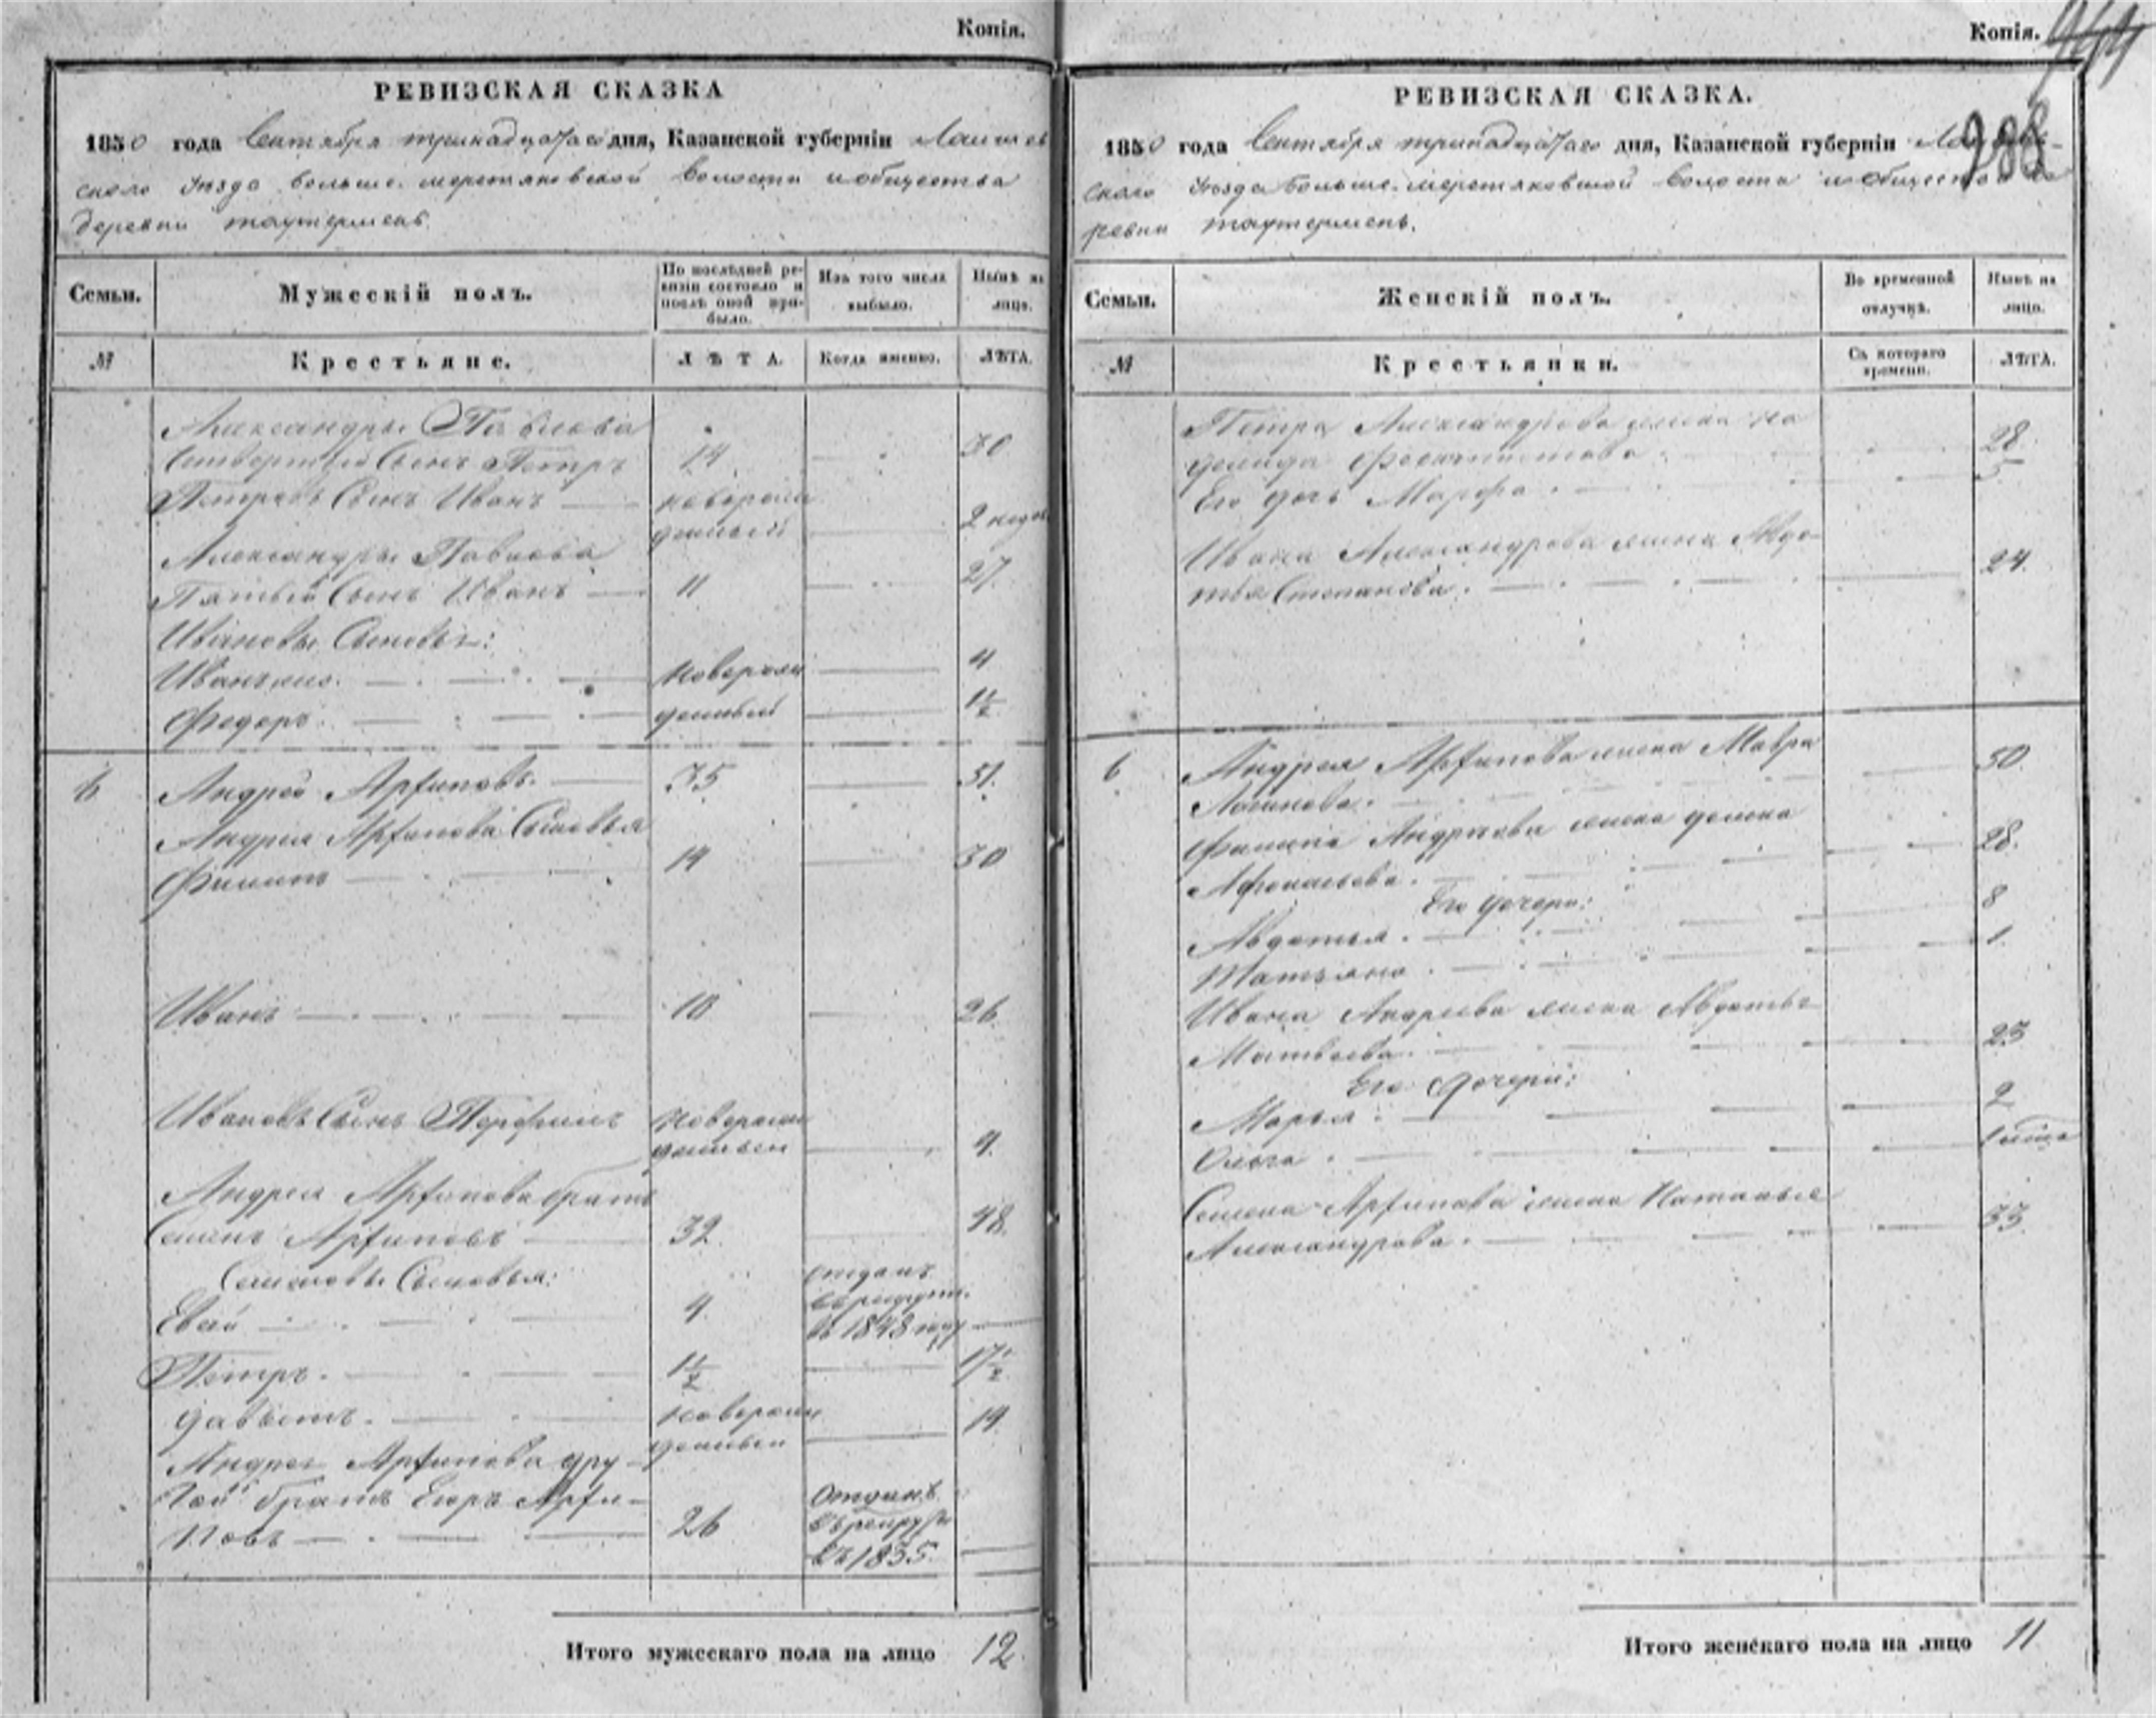 Копія.
РЕВИЗСКАЯ СКАЗКА
1850 года Сентября тринадцатаго дня, Казанской губерніи Лаишев
скаго уѣзда больше меретяковской волости и общества
деревни таутермень
Семьи.
Мужескій полъ.
По послѣдней ре-
визіи состояло и
послѣ оной при-
было.
Изъ того числа
выбыло.
Нынѣ на
лицо.
№
Крестьяне.
ЛѢТА.
Когда именно.
ЛѢТА.
Александры Павлова
Четвертый Сынъ Петръ 14 30
Петровъ Сынъ Иванъ новорож
денный 2 недѣ
Александры Павлова
Пятый Сынъ Иванъ 11 27.
Ивановы Сыновья:
Иванъ новорож 4
Федоръ. денный 1½
6 Андрей Архиповъ. 35 51.
Андрея Архипова Сыновья
Филипъ 14 30
Иванъ 10 26.
Ивановъ Сынъ Порфилъ новорож
денный 4.
Андрея Архипова братъ
Семенъ Архиповъ 32. 48.
Семеновы Сыновья: отданъ
въ рекрут.
Евсій 4. въ 1848 году
Петръ. 1½ 17½
давыдъ. новорож
денный 14
Андрея Архипова дру-
гой братъ Егоръ Архи- Отданъ
повъ 26 въ рекруты
въ 1835.
Итого мужескаго пола на лицо 12.
Копія.
288
РЕВИЗСКАЯ СКАЗКА.
1850 года Сентября тринадцатаго дня, Казанской губерніи Лаишев-
скаго уѣзда больше меретяковской волости и общества де
ревни таутермень.
Семьи.
Женскій полъ.
Во временной
отлучкѣ.
Нынѣ на
лицо.
№
Крестьянки.
Съ котораго
времени.
ЛѢТА.
Петра Александрова жена На
28.
Его дочь Марфа. 5
Ивана Александрова жена Авдо-
тья Степанова. 24.
6 Андрея Архипова жена Мавра 50.
Логинова.
Филипа Андреева жена
Афонасьева. 28.
Его дочери:
Авдотья. 8
Татьяна. 1.
Ивана Андреева жена Авдотья
Матвѣева. 23
Его дочери:
Марья. 2
Ольга.
Семена Архипова жена Наталья
Александрова. 33.
Итого женскаго пола на лицо 11